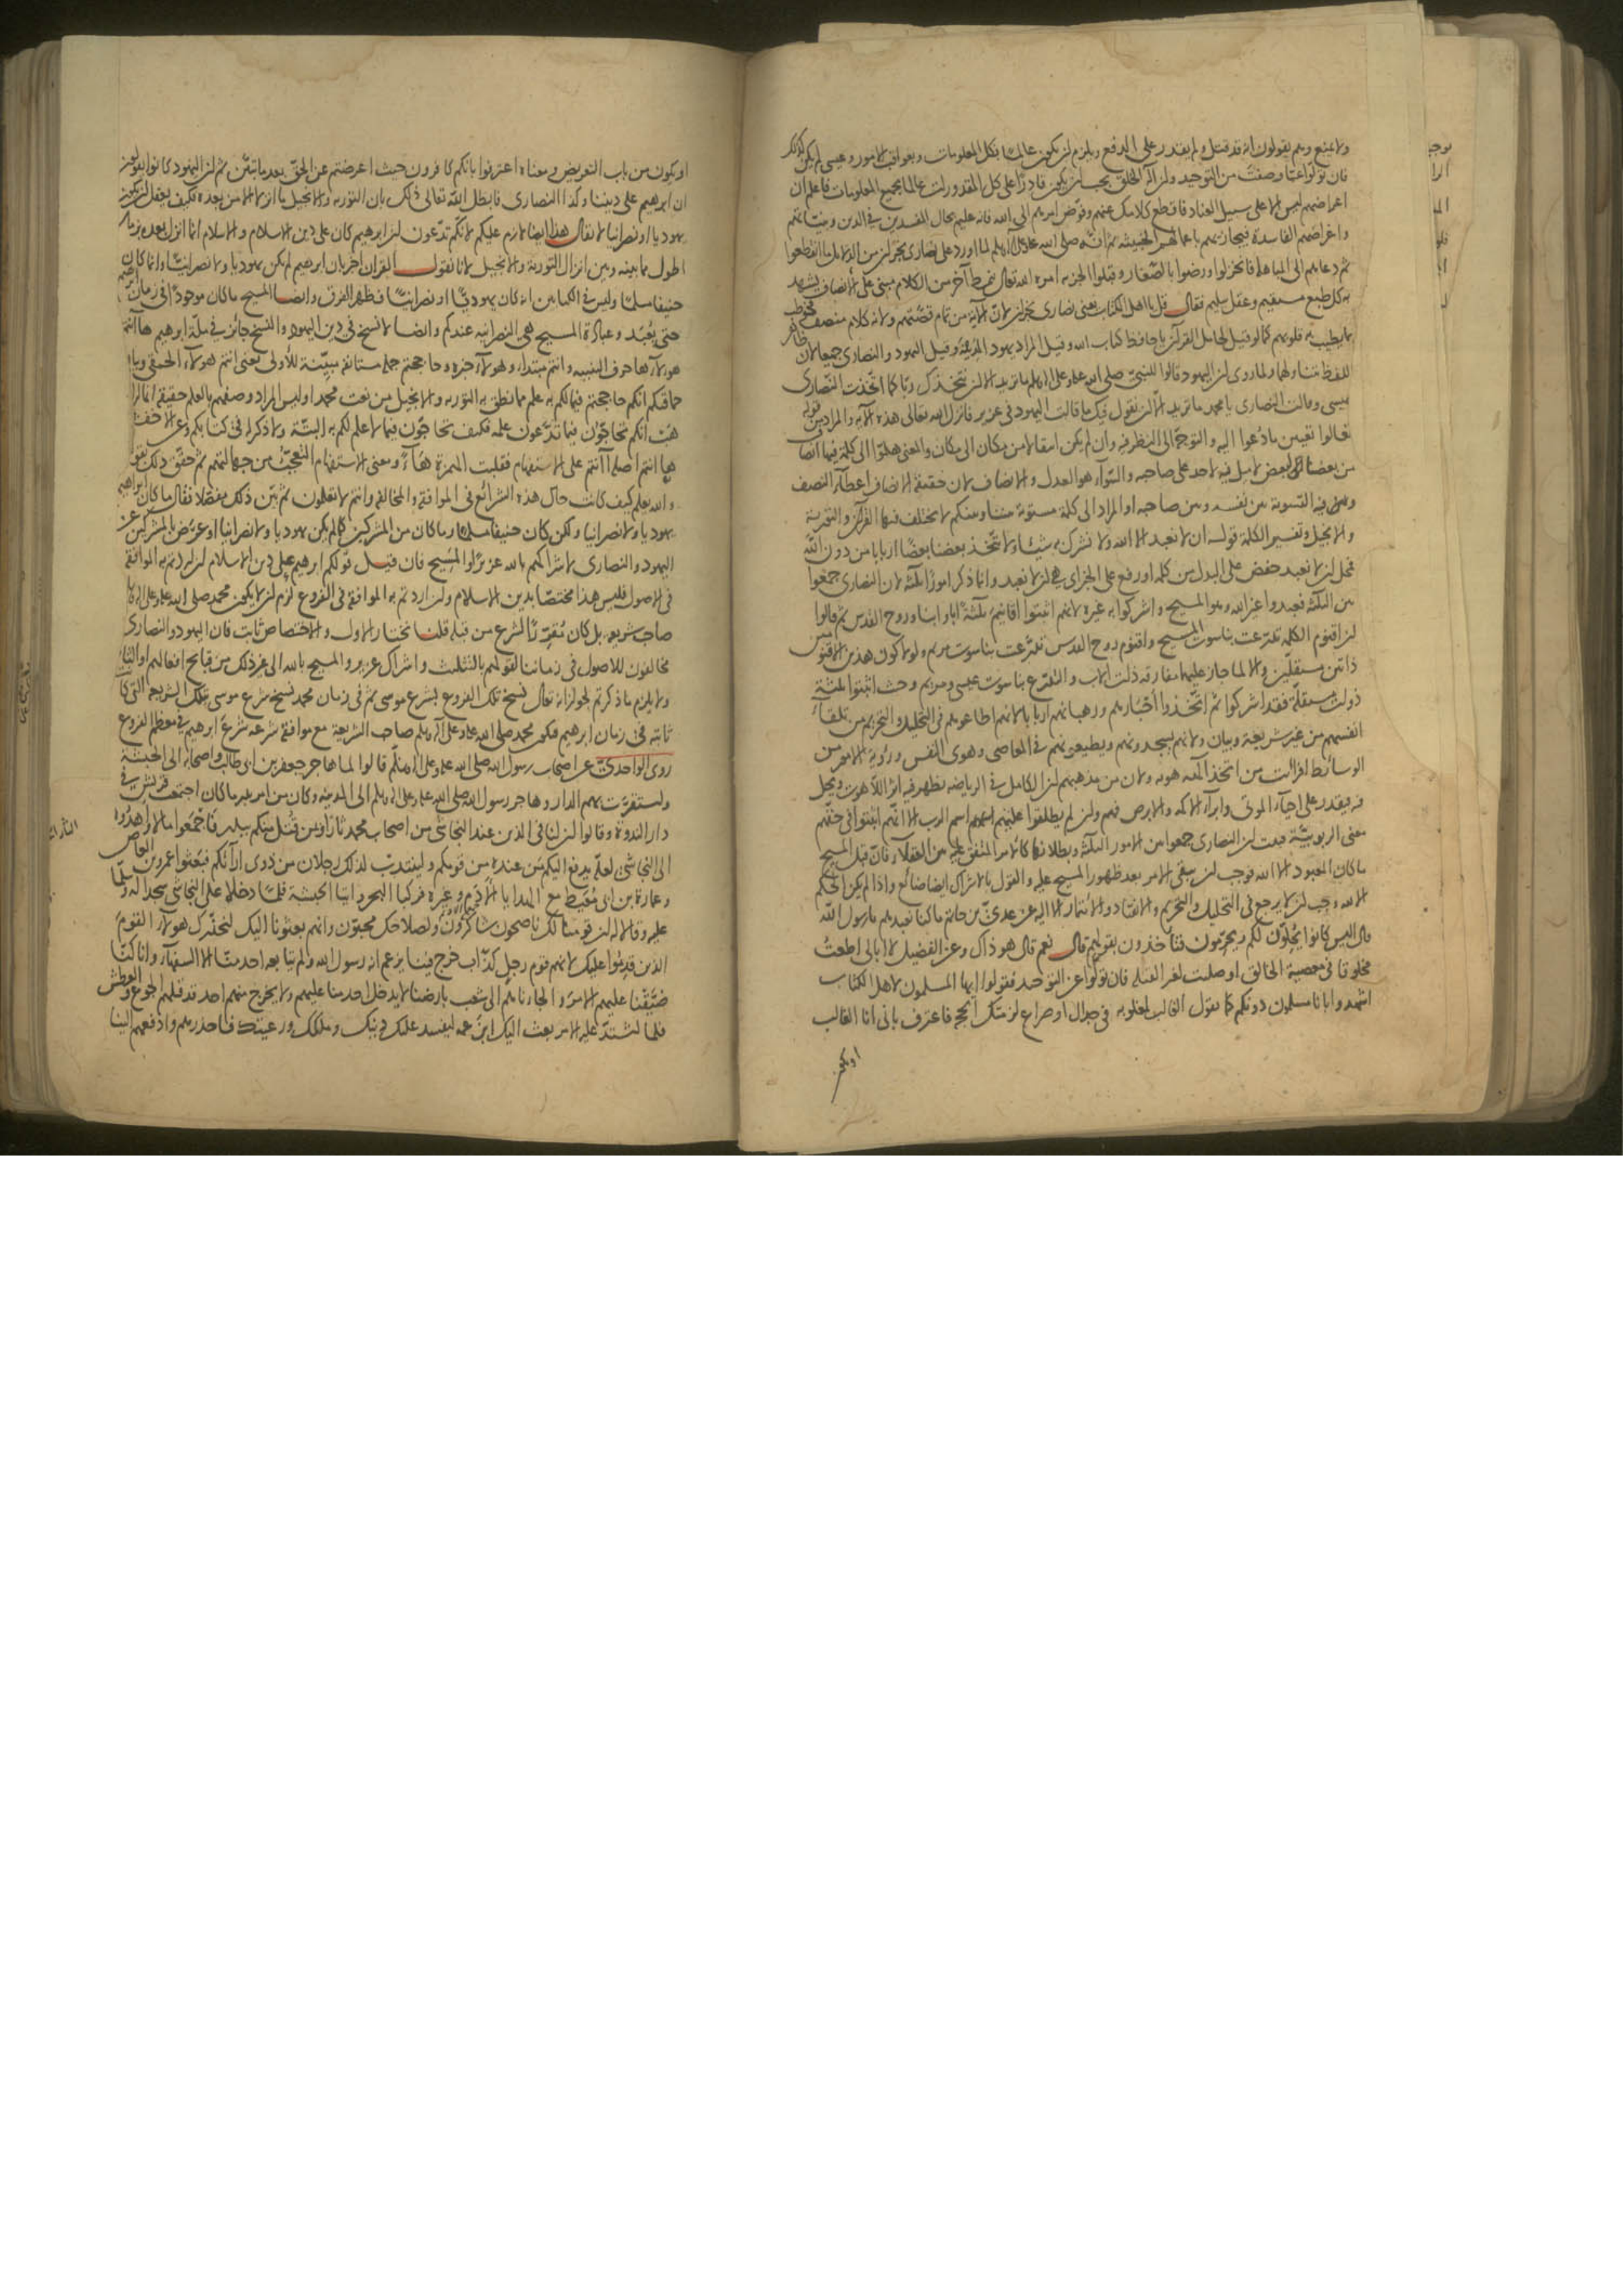 ولا يمنع وهم يقولون انه قد قتل ولم يقدر على الدفع ويلزم ان يكون عالما بكل المعلومات وبعواقب الامور وعيسى لم يكن كذلك
فان تولوا عما وصفت من التوحيد وان اله الخلق يجب ان يكون قادرا على كل المقدورات عالما بجميع المعلومات فاعلم ان
اعراضهم ليس الا على سبيل العناد فاقطع كلامك عنهم وفوض امرهم الى الله فانه عليم بحال المفسدين في الدين وبنياتهم
واغراضهم الفاسدة فيجازيهم باعمالهم الخبيثة ثم انه صلى الله عليه وعلى اله وسلم لما اورد على نصارى نجران من الدلائل ما انقطعوا
ثم دعاهم الى المباهلة فانخزلوا ورضوا بالصغار وقبلوا الجزية امره الله تعالى بنمط آخر من الكلام مبني على الانصاف يشهد
به كل طبع مستقيم وعقل سليم فقال قل يا اهل الكتاب يعني نصارى نجران لان الآية من تمام قصتهم ولانه كلام منصف مخاطب
بما يطيب به قلوبهم كما لو قيل لحامل القرآن يا حافظ كتاب الله وقيل المراد يهود المدينة وقيل اليهود والنصارى جميعا لان ظاهر
اللفظ متناولهما ولما روي ان اليهود قالوا للنبي صلى الله عليه وعلى اله وسلم ما تريد الا ان نتخذك ربا كما اتخذت النصارى
عيسى وقالت النصارى يا محمد ما تريد الا ان نقول فيك ما قالت اليهود في عزير فانزل الله تعالى هذه الآية والمراد من قوله
تعالوا تعيين ما دعوا اليه والتوجه الى النظر فيه وان لم يكن انتقالا من مكان الى مكان والمعنى هلموا الى كلمة فيها انصاف
من بعضنا لبعض لا ميل فيه لاحد على صاحبه والسواء هو العدل والانصاف لان حقيقة الانصاف اعطاء النصف
وفيه التسوية بين نفسه وبين صاحبه او المراد الى كلمة مستوية بيننا وبينكم لا يختلف فيها القرآن والتورية
والانجيل وتفسير الكلمة قوله ان لا نعبد الا الله ولا نشرك به شيئا ولا يتخذ بعضنا بعضا اربابا من دون الله
فمحل ان لا نعبد خفض على البدل من كلمة او رفع على الخبر اي هي ان لا نعبد وانما ذكر امورا ثلثة لان النصارى جمعوا
بين الثلثة فعبدوا غير الله وهو المسيح واشركوا به غيره لانهم اثبتوا اقانيم ثلثة ابا وابنا وروح القدس ثم قالوا
ان اقنوم الكلمة تدرعت بناسوت المسيح واقنوم روح القدس تدرعت بناسوت مريم ولولا كون هذين الاقنومين
ذاتين مستقلين والا لما جاز عليهما مفارقة ذات الاب والتدرع بناسوت عيسى ومريم وحيث اثبتوا ثلثة
ذوات مستقلة فقد اشركوا ثم اتخذوا احبارهم ورهبانهم اربابا لانهم اطاعوهم في التحليل والتحريم من تلقاء
انفسهم من غير شريعة وبيان ولانهم يسجدون لهم ويطيعونهم في المعاصي وهوى النفس ورؤية الامور من
الوسائط افرايت من اتخذ الهه هواه ولان من مذهبهم ان الكامل في الرياضة يظهر فيه اثر اللاهوت ويحل
فيه فيقدر على احياء الموتى وابراء الاكمه والابرص فهم وان لم يطلقوا عليهم اسم الرب الا انهم اثبتوا في حقهم
معنى الربوبية فثبت ان النصارى جمعوا بين الامور الثلثة وبطلانها كالامر المتفق عليه بين العقلاء فان قبل المسيح
ما كان المعبود الا الله فوجب ان يبقى الامر بعد ظهور المسيح عليه والقول بالاشراك ايضا ضائع واذا لم يكن الحكم
الا لله وجب ان لا يرجع في التحليل والتحريم والانقياد والائتمار الا اليه عن عدي بن حاتم ما كنا نعبدهم يا رسول الله
قال اليس كانوا يحلون لكم ويحرمون فتاخذون بقولهم قال نعم قال هو ذاك وعن الفضيل لا ابالي اطعت
مخلوقا في معصية الخالق او صليت لغير القبلة فان تولوا عن التوحيد فقولوا ايها المسلمون لاهل الكتاب
اشهدوا بانا مسلمون دونكم كما يقول الغالب لمغلوبه في جدال او صراع لزمتك الحجة فاعترف باني انا الغالب
او يكون
او يكون من باب التعريض ومعناه اعترفوا بانكم كافرون حيث اعرضتم عن الحق بعد ما تبين ثم ان اليهود كانوا يقولون
ان ابرهيم على ديننا وكذا النصارى فابطل الله تعالى ذلك بان التورية والانجيل ما انزلا الا من بعده فكيف يعقل ان يكون
يهوديا او نصرانيا لا يقال هذا ايضا لازم عليكم لانكم تدعون ان ابرهيم كان على دين الاسلام والاسلام انما انزل بعده بزمان
اطول مما بينه وبين انزال التورية والانجيل لانا نقول القرآن اخبر بان ابرهيم لم يكن يهوديا ولا نصرانيا وانما كان
حنيفا مسلما وليس في الكتابين انه كان يهوديا او نصرانيا فظهر الفرق وايضا المسيح ما كان موجودا في زمان ابرهيم
حتى يعبد وعبادة المسيح هي النصرانية عندكم وايضا لا نسخ في دين اليهود والنسخ جائز في ملة ابرهيم ها انتم
هؤلاء ها حرف التنبيه وانتم مبتدا وهؤلاء خبره وحاججتم جملة مستانفة مبينة للاولى يعني انتم هؤلاء الحمقى وبيان
حماقتكم انكم حاججتم فيما لكم به علم مما نطق به التورية والانجيل من نعت محمد او ليس المراد وصفهم بالعلم حقيقة انما اراد
هب انكم تحاجون فيما تدعون علمه فكيف تحاجون فيما لا علم لكم به البتة ولا ذكر له في كتابكم وعن الاخفش
ها انتم اصله أأنتم على الاستفهام فقلبت الهمزة هاء ومعنى الاستفهام التعجب من جهالتهم ثم حقق ذلك بقوله
والله يعلم كيف كانت حال هذه الشرائع في الموافقة والمخالفة وانتم لا تعلمون ثم بين ذلك مفصلا فقال ما كان ابراهيم
يهوديا ولا نصرانيا ولكن كان حنيفا مسلما وما كان من المشركين كما لم يكن يهوديا ولا نصرانيا او عرض بالمشركين عن
اليهود والنصارى لاشراكهم بالله عزيرا والمسيح فان قيل قولكم ابرهيم على دين الاسلام ان اردتم به الموافقة
في الاصول فليس هذا مختصا بدين الاسلام وان اردتم به الموافقة في الفروع لزم ان لا يكون محمد صلى الله عليه وعلى اله
صاحب شريعة بل كان مقررا لشرع من قبله قلنا نختار الاول والاختصاص ثابت فان اليهود والنصارى
مخالفون للاصول في زماننا لقولهم بالتثليث واشراك عزير والمسيح بالله الى غير ذلك من قبائح افعالهم او الثاني
ولا يلزم ما ذكرتم لجواز انه تعالى نسخ تلك الفروع بشرع موسى ثم في زمان محمد نسخ شرع موسى بتلك الشريعة التي كانت
ثابتة في زمان ابرهيم فيكون محمد صلى الله عليه وعلى آله وسلم صاحب الشريعة مع موافقة شرعه شرع ابرهيم في معظم الفروع
روى الواحدي عن اصحاب رسول الله صلى الله عليه وعلى اله وسلم قالوا لما هاجر جعفر بن ابي طالب واصحابه الى الحبشة
واستقرت بهم الدار وهاجر رسول الله صلى الله عليه وعلى اله وسلم الى المدينة وكان من امر بدر ما كان اجتمعت قريش في
دار الندوة وقالوا ان لنا في الذين عند النجاشي من اصحاب محمد ثارا ومن قتل منكم ببدر فاجمعوا مالا واهدوا
الى النجاشي لعله يدفع اليكم من عنده من قومكم ولينتدب لذلك رجلان من ذوي ارائكم فبعثوا عمرو بن العاص
وعمارة بن ابي معيط مع الهدايا الادم وغيره فركبا البحر واتيا الحبشة فلما دخلا على النجاشي سجدا له وسلما
عليه وقالا له ان قومنا لك ناصحون شاكرون ولصلاحك محبون وانهم بعثونا اليك لنحذرك هؤلاء القوم
الذين قدموا عليك لانهم قوم رجل كذاب خرج فينا يزعم انه رسول الله ولم يتابعه احد منا الا السفهاء وانا كنا
ضيقنا عليهم الامر والجاناهم الى شعب بارضنا لا يدخل احد منا عليهم ولا يخرج منهم احد قد قتلهم الجوع والعطش
فلما اشتد عليه الامر بعث اليك ابن عمه ليفسد عليك دينك وملكك ورعيتك فاحذرهم وادفعهم الينا